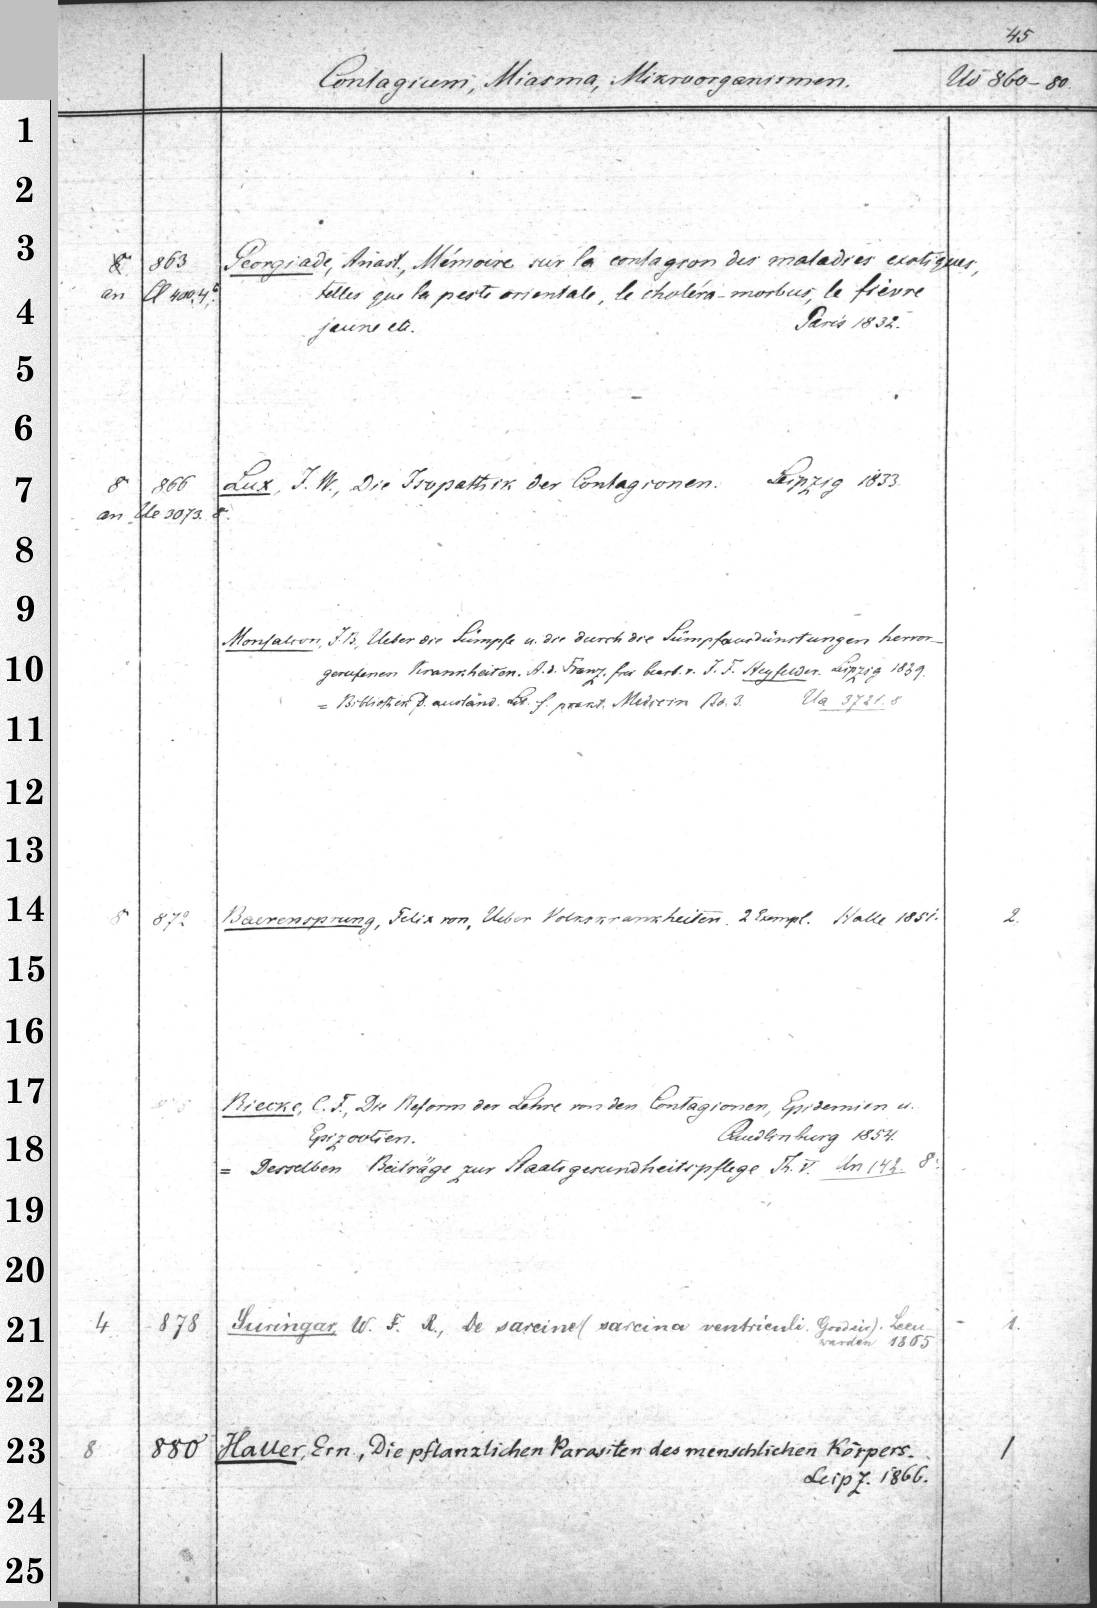 45
Contagium, Miasma, Mikroorganismen. Ud 860-80.
1
2
3
8 863 Georgiade, Anast., Mémoire sur la contagion des maladies exotiques,
an telles que la peste orientale, le choléra-morbus, le fièvre
4
jaune etc. Paris 1832.
5
6
7
8 866 Lux, J. W., Die Isopathik der Contagionen. Leipzig 1833.
an Ue 3073. 8.
8
9
Monfalcon, J. B., Ueber die Sümpfe u. die durch die Sumpfausdünstungen hervor-
10
gerufenen Krankheiten. A. d. Franz. frei bearb. v. J. F. Heyfelder. Leipzig 1839.
= Bibliothek d. ausländ. Lit. f. prakt. Medicin Bd. 3. Ua 3721. 8
11
12
13
14
8 872 Baerensprung, Felix von, Ueber Volkskrankheiten. 2 Exempl. Halle 1851. 2.
15
16
17
Riecke, C. F., Die Reform der Lehre von den Contagionen, Epidemien u.
Epizootien. Quedlinburg 1854.
18
= Desselben Beiträge zur Staatsgesundheitspflege Th. V. Un 142. 8.
19
20
21
4 878 Suringar, W. F. R., De sarcine (sarcina ventriculi Goodsir). Leeu- 1.
warden 1865
22
23
8 880 Haller, Ern., Die pflanzlichen Parasiten des menschlichen Körpers. 1
Leipz. 1866.
24
25